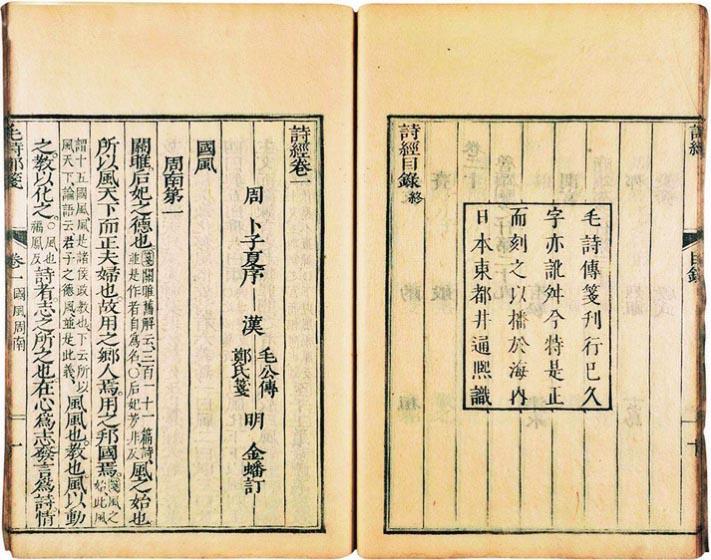 詩經
目錄
詩經目錄終
毛詩傳箋刊行已久
字亦訛舛今特是正
而刻之以播於海内
日本東都井通熙識
詩經卷一
周 卜子夏序 漢 毛公傳 鄭氏箋 明 金蟠訂
國風
周南第一
關雎后妃之德也箋關雎舊解云三百一十一篇詩並是作者自為名○后妃芳非反風之始也
所以風天下而正夫婦也故用之鄉人焉用之邦國焉箋風之始此風
謂十五國風風是諸侯政教也下云所以風天下論語云君子之德風並是此義風風也教也風以動
之教以化之○風也福鳳反詩者志之所之也在心為志發言為詩情
毛詩鄭箋 卷一 國風周南 一